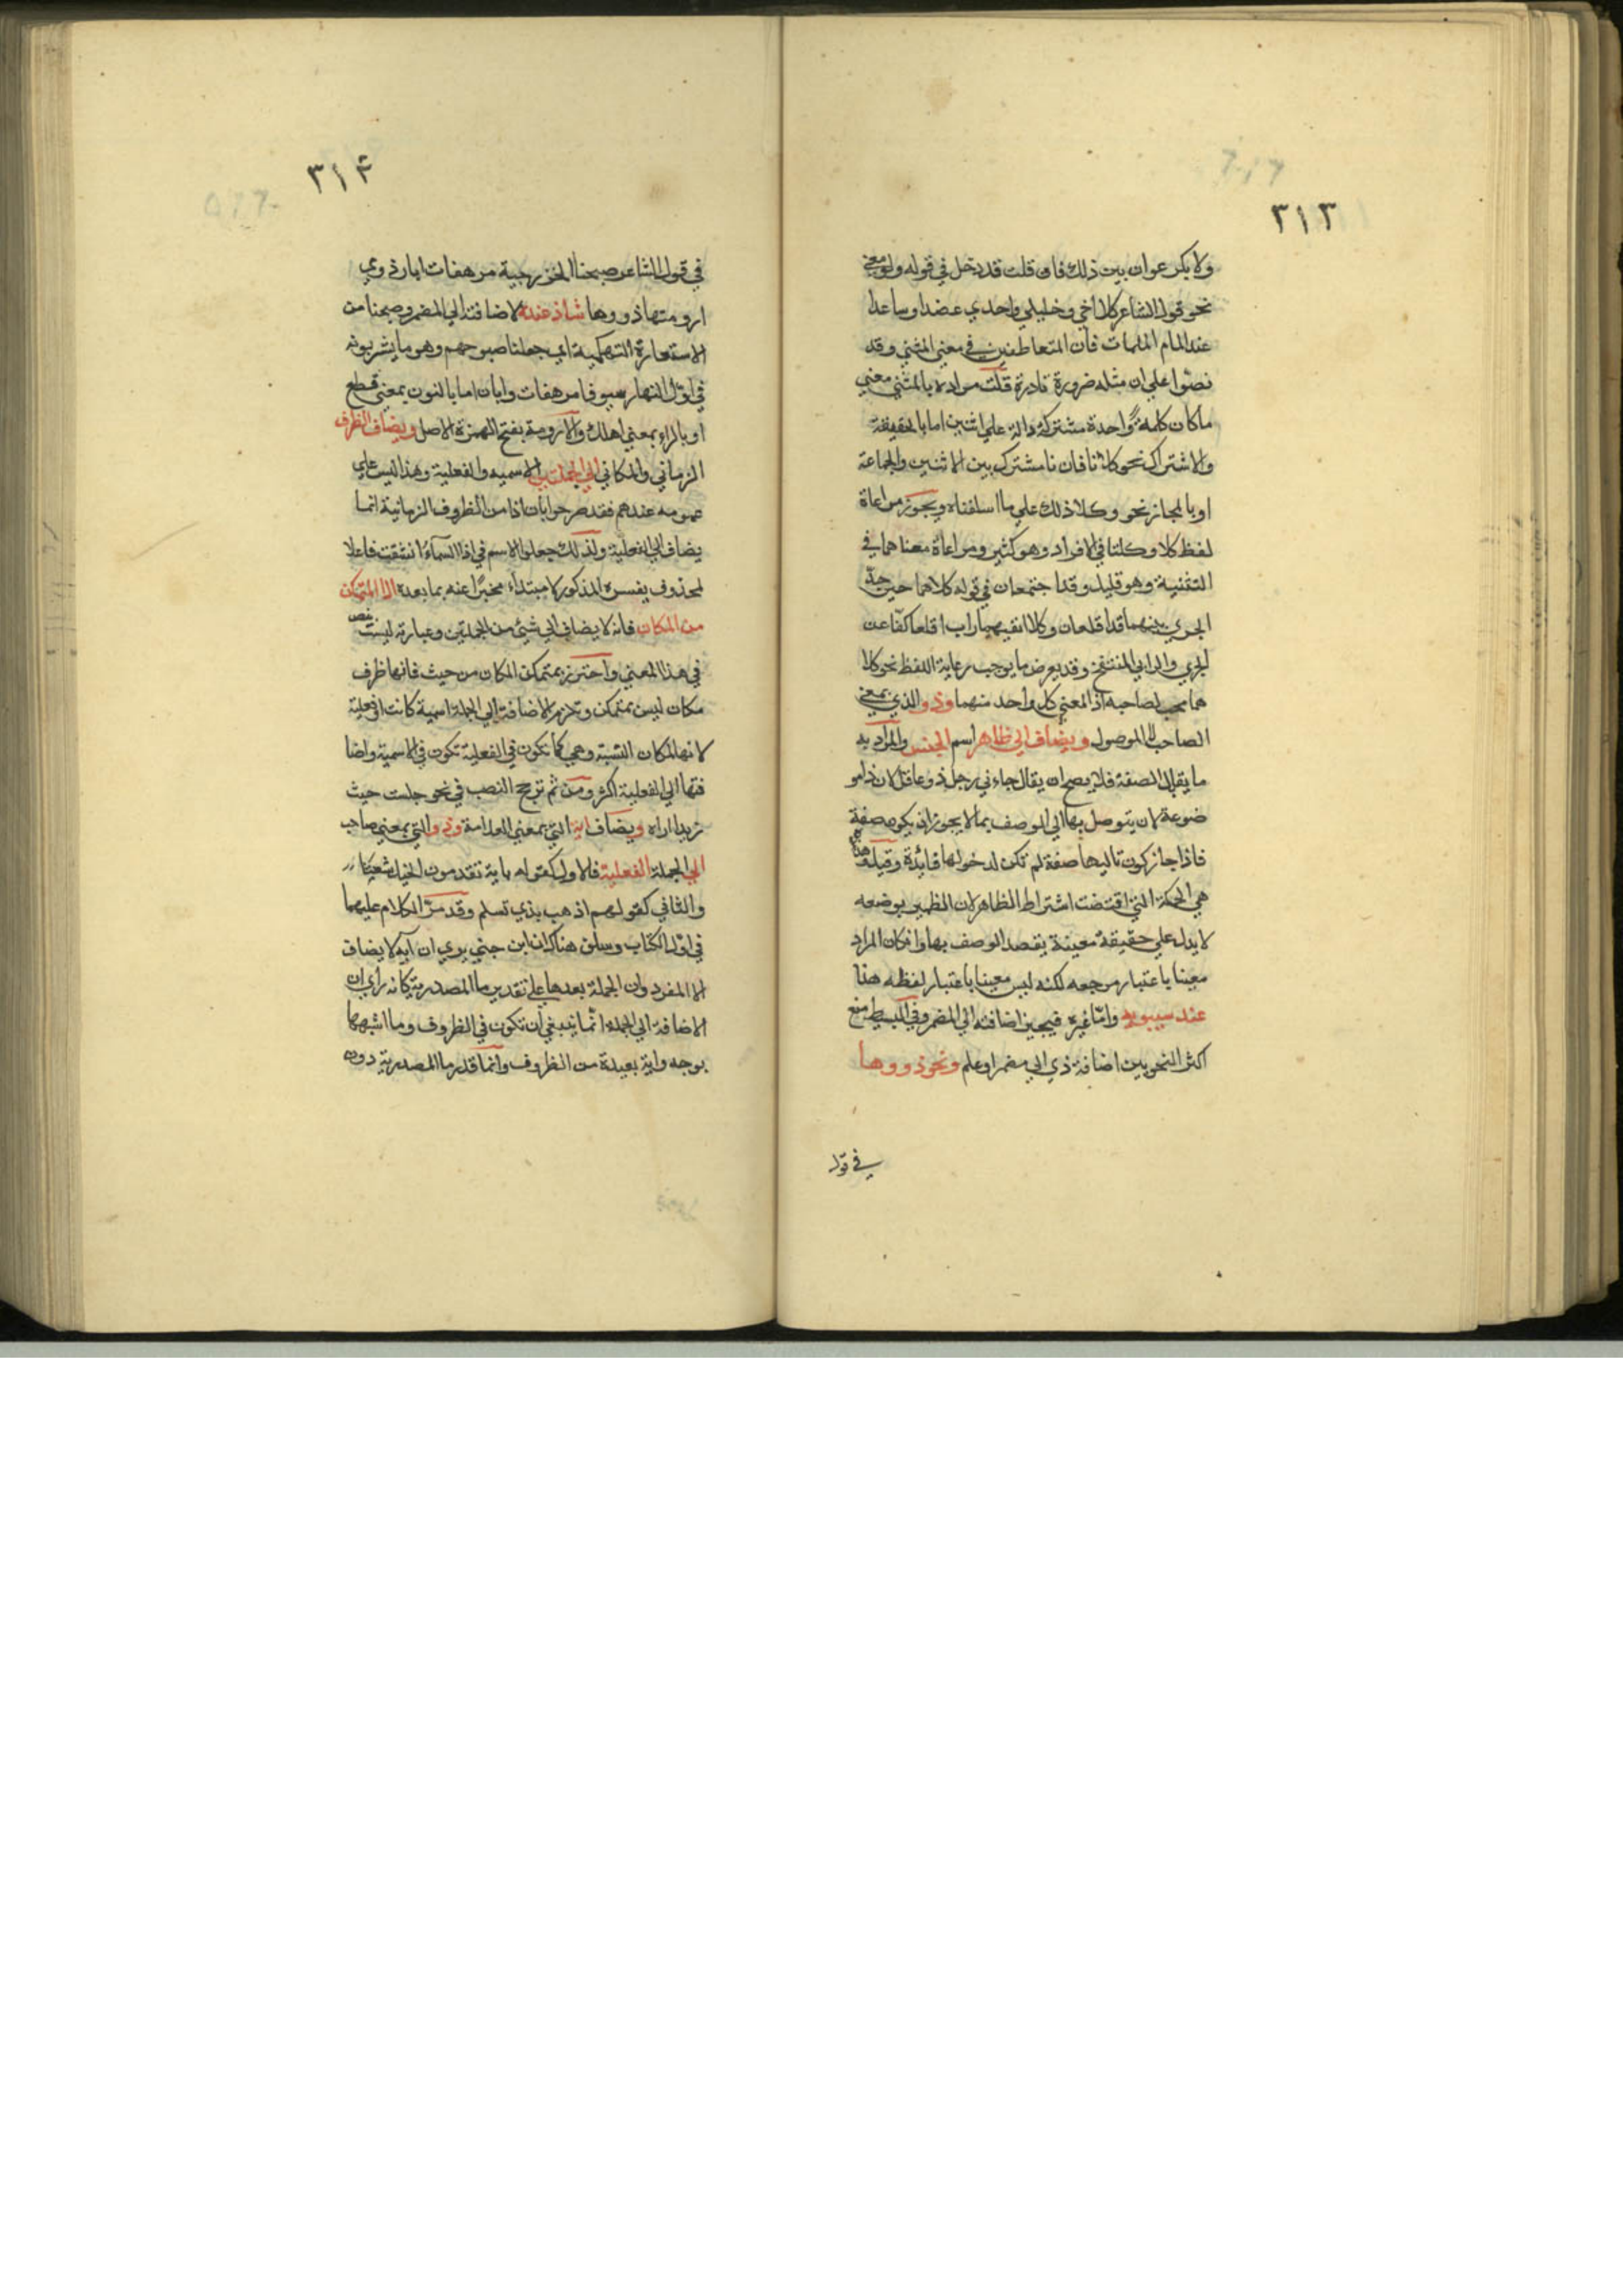 ٣١٣
ولا بكر عوان بين ذلك فان قلت قد دخل في قوله ولو معني
نحو قول الشاعر كلا اخي وخليلي واجدي عضدا وساعدا
عند المام الملمات فان المتعاطفين في معني المثني وقد
نصّوا علي ان مثله ضرورة نادرة قلت مراده بالمثني معني
ما كان كلمة واحدة مشتركة دالة علي اثنين اما بالحقيقة
والاشتراك نحو كلانا فان نا مشترك بين الاثنين والجماعة
او بالمجاز نحو وكلا ذلك علي ما اسلفناه ويجوز مراعاة
لفظ كلا وكلتا في الافراد وهو كثير ومراعاة معناهما في
التثنية وهو قليل وقد اجتمعا في قوله كلاهما حين جدّ
الجري بينهما قد اقلعا وكلا انفيهما راب اقلعا كفّا عن
الجري والرابي المنتفخ وقد يعرض ما يوجب رعاية اللفظ نحو كلا
هما محب لصاحبه اذ المعني كل واحد منهما وذو الذي بمعني
الصاحب لا الموصول ويضاف الي ظاهر اسم الجنس والمراد به
ما يقابل الصفة فلا يصح ان يقال جاءني رجل ذو عاقل لان ذا مو
ضوعة لان يتوصل بها الي الوصف بما لا يجوز ان يكون صفة
فاذا جاز كون تاليها صفة لم تكن لدخولها فائدة وقيل هذه
هي الحكمة التي اقتضت اشتراط الظاهر لان الظهير بوضعه
لا يدل علي حقيقة معينة يقصد الوصف بها وان كان المراد
معينا باعتبار مرجعه لكنه ليس معينا باعتبار لفظه هذا
عند سيبويه وامّا غيره فيجيز اضافته الي المضمر وفي البسيط منع
اكثر النحويين اضافة ذي الي مضمر او علم ونحو ذووها
في قول
٣١٤
في قول الشاعر صبحنا الخزرجية مرهفات ابار ذوي
ارومتها ذووها شاذ عنده لاضافته الي المضمر وصبحنا من
الاستعارة التهكمية اي جعلنا صبوحهم وهو ما يشربونه
في اوّل النهار سيوفا مرهفات وابان اما بالنون بمعني قطع
او بالراء بمعني اهلك والارومة بفتح الهمزة الاصل ويضاف الظرف
الزماني والمكاني الي الجملتين الاسميه والفعلية وهذا ليس علي
عمومه عندهم فقد صرحوا بان اذا من الظروف الزمانية انما
يضاف الي الفعلية ولذلك جعلوا الاسم في اذا السّمآء انشقت فاعلا
لمحذوف يفسره المذكور لا مبتداء مخبرًا عنه بما بعده الا المتمكن
من المكان فانه لا يضاف الي شيئ من الجملتين وعبارته ليست نص
في هذا المعني واحترز بمتمكن المكان من حيث فانها ظرف
مكان ليس بمتمكن وتلزم الاضافة الي الجملة اسمية كانت او فعلية
لانها لمكان النسبة وهي كما تكون في الفعلية تكون في الاسمية واضا
فتها الي الفعلية اكثر ومن ثم ترجح النصب في نحو جلست حيث
زيدا اراه ويضاف اية التي بمعني العلامة وذو التي بمعني صاحب
الي الجملة الفعلية فالاول كقوله باية تقدمون الخيل شعثا
والثاني كقولهم اذهب بذي تسلم وقد مرّ الكلام عليهما
في اوّل الكتاب وسلف هناك ان ابن جني يري ان آية لا يضاف
الا المفرد وان الجملة بعدها علي تقدير ما المصدرية كانه راي ان
الاضافة الي الجملة انّما ينبغي أن تكون في الظروف وما اشبهها
بوجه واية بعيدة من الظروف وانما قدر ما المصدرية دون